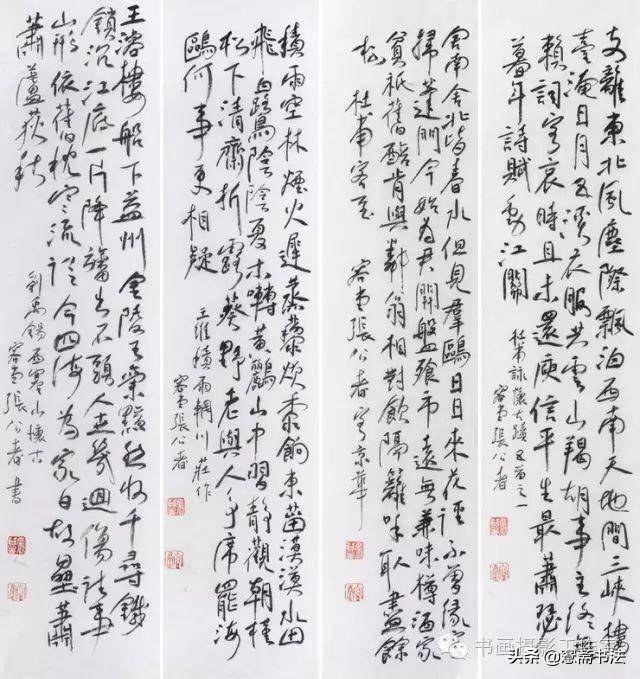 支離東北風塵際飄泊西南天地間三峽樓
臺淹日月五溪衣服共雲山羯胡事主終無
賴詞客哀時且未還庾信平生最蕭瑟
暮年詩賦動江關
杜甫詠懷古蹟五首之一
容堂張公者
舍南舍北皆春水但見羣鷗日日來花徑不曾緣客
掃蓬門今始為君開盤飧市遠無兼味樽酒家
貧祇舊醅肯與鄰翁相對飲隔籬呼取盡餘
杯 杜甫客至 容堂張公者書京華
積雨空林煙火遲蒸藜炊黍餉東菑漠漠水田
飛白鷺陰陰夏木囀黃鸝山中習靜觀朝槿
松下清齋折露葵野老與人爭席罷海
鷗何事更相疑
王維積雨輞川莊作
容堂張公者
王濬樓船下益州金陵王氣黯然收千尋鐵
鎖沉江底一片降旛出石頭人世幾迴傷往事
山形依舊枕寒流從今四海為家日故壘蕭
蕭蘆荻秋
劉禹錫西塞山懷古
容堂張公者書
头条 @憨斋书法